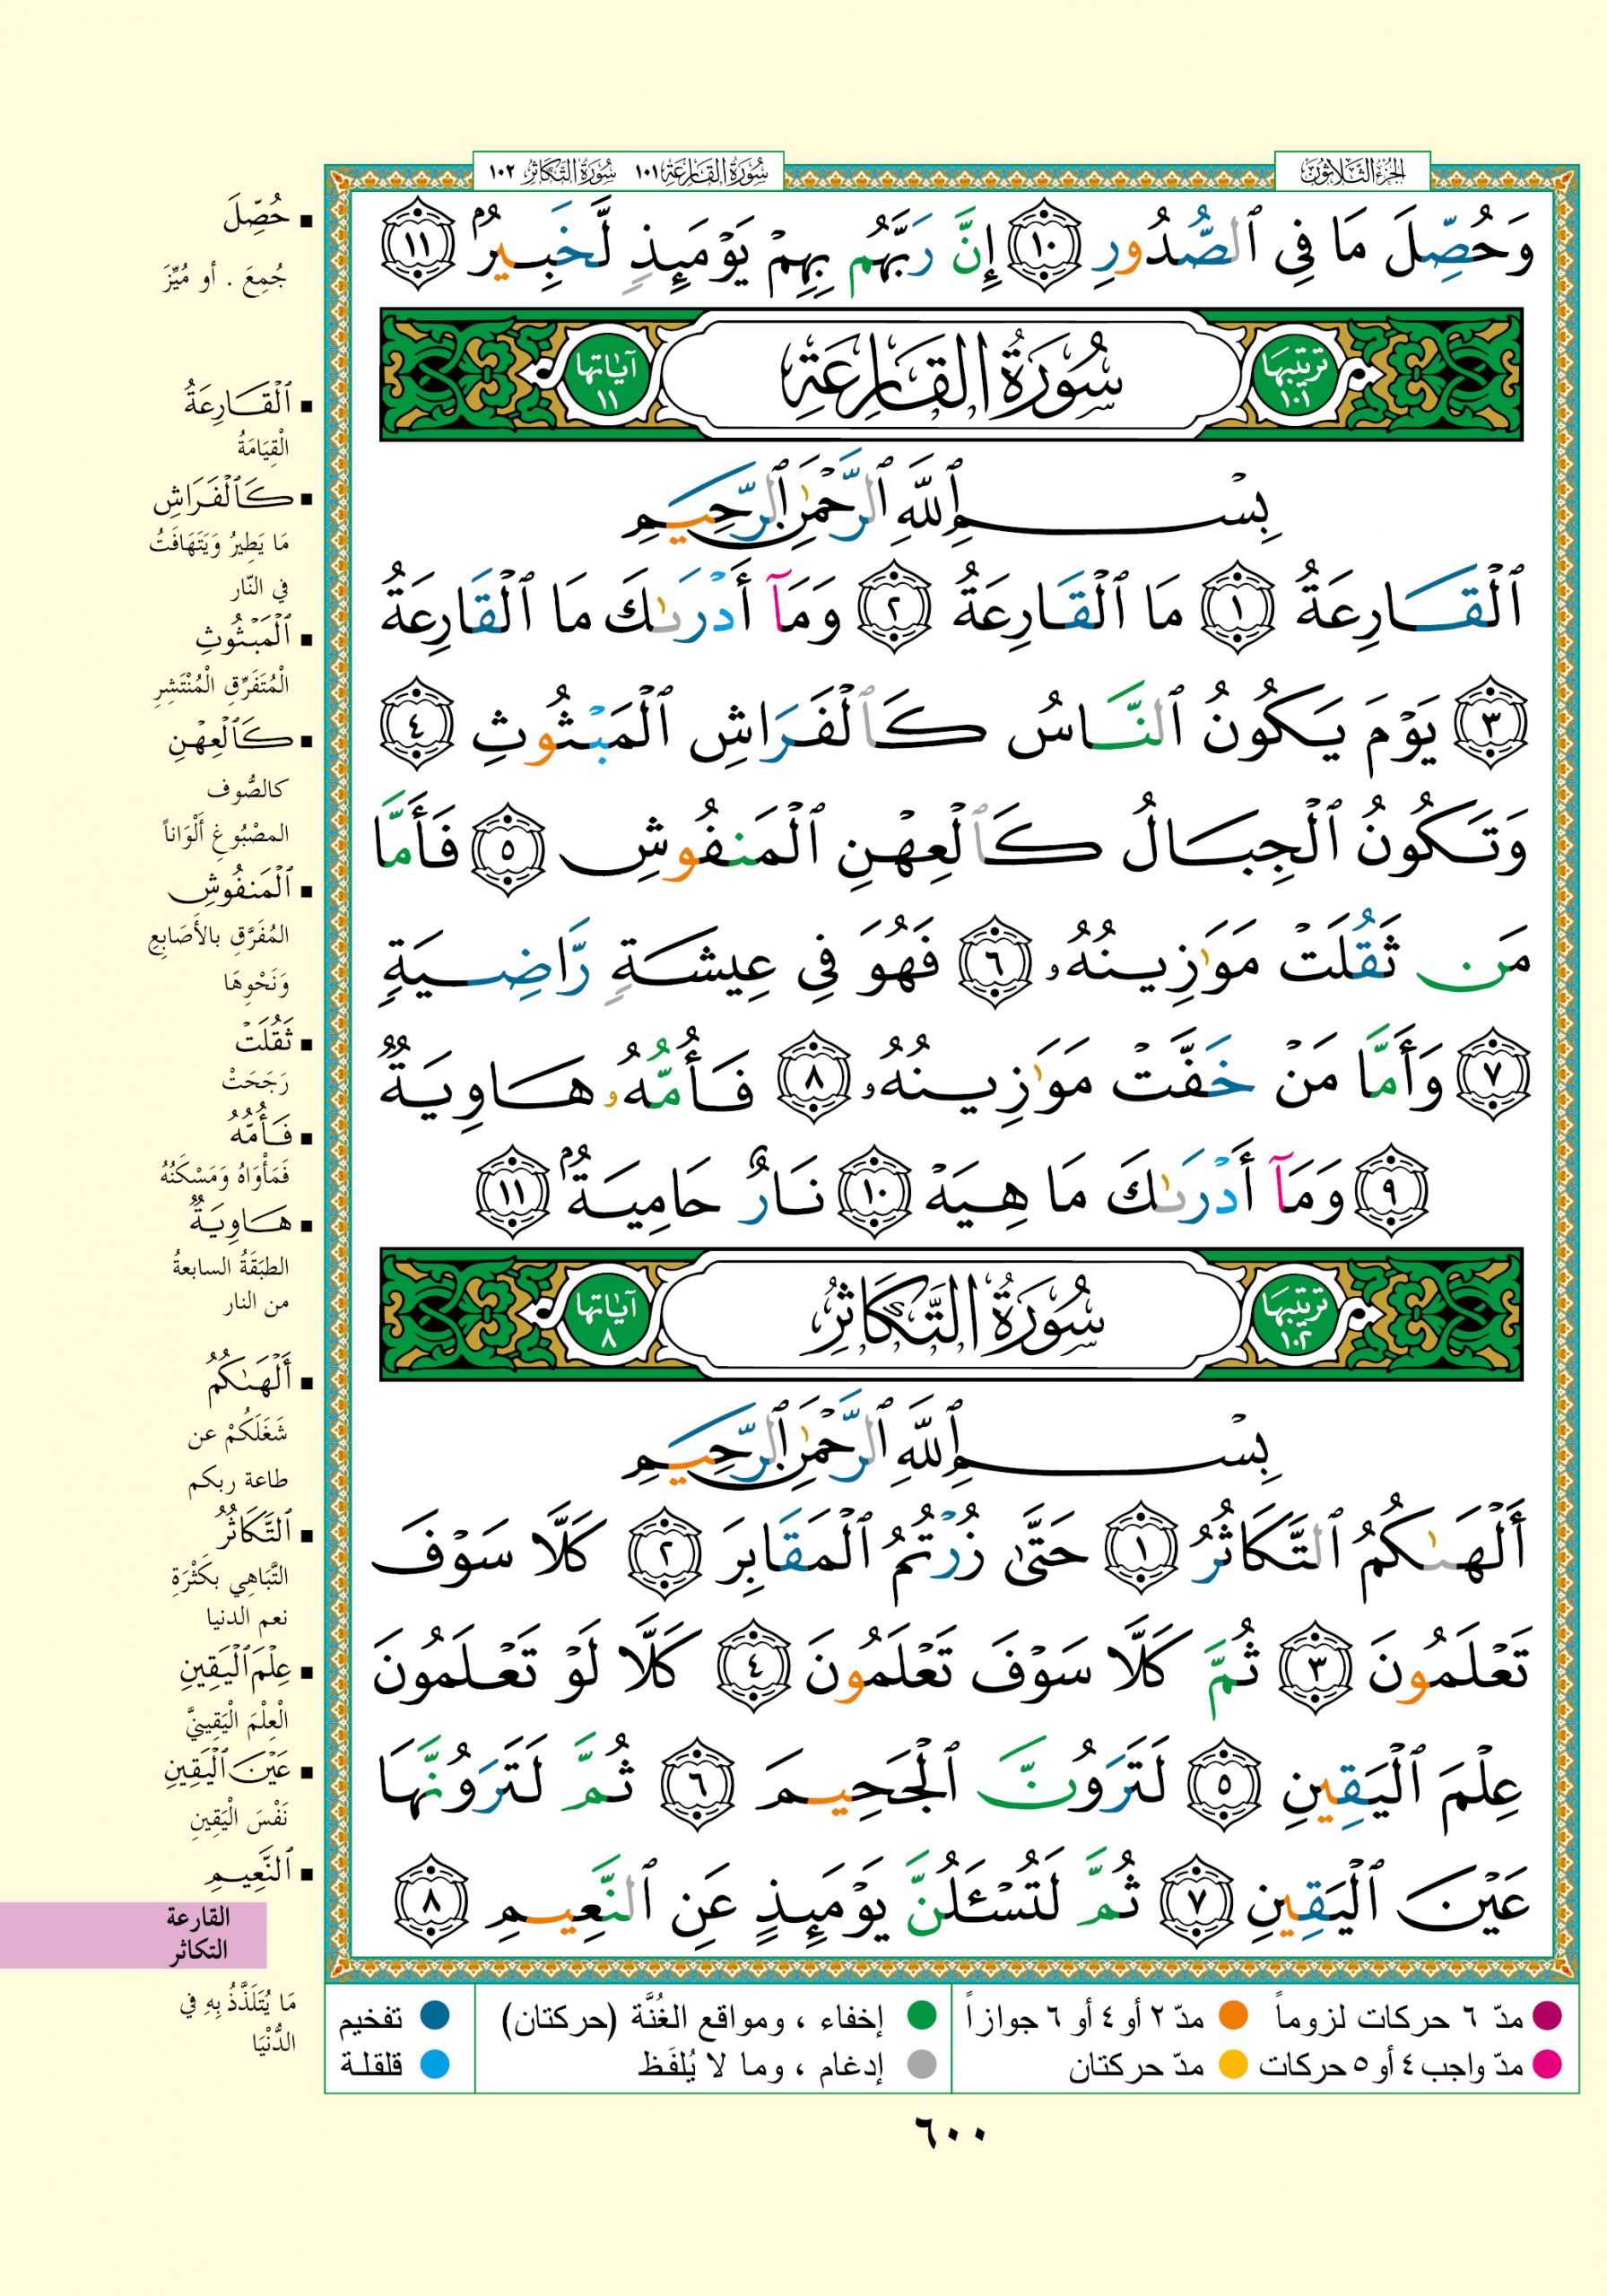 الجزء الثلاثون
سورة القارعة ١٠١ سورة التكاثر ١٠٢
وَحُصِّلَ مَا فِى ٱلصُّدُورِ ١٠ إِنَّ رَبَّهُم بِهِمْ يَوْمَئِذٍ لَّخَبِيرٌۢ ١١
ترتيبها ١٠١ سُورَةُ القَارِعَةِ آياتها ١١
بِسْمِ ٱللَّهِ ٱلرَّحْمَٰنِ ٱلرَّحِيمِ
ٱلْقَارِعَةُ ١ مَا ٱلْقَارِعَةُ ٢ وَمَآ أَدْرَىٰكَ مَا ٱلْقَارِعَةُ
٣ يَوْمَ يَكُونُ ٱلنَّاسُ كَٱلْفَرَاشِ ٱلْمَبْثُوثِ ٤
وَتَكُونُ ٱلْجِبَالُ كَٱلْعِهْنِ ٱلْمَنفُوشِ ٥ فَأَمَّا
مَن ثَقُلَتْ مَوَٰزِينُهُۥ ٦ فَهُوَ فِى عِيشَةٍ رَّاضِيَةٍ
٧ وَأَمَّا مَنْ خَفَّتْ مَوَٰزِينُهُۥ ٨ فَأُمُّهُۥ هَاوِيَةٌ
٩ وَمَآ أَدْرَىٰكَ مَا هِيَهْ ١٠ نَارٌ حَامِيَةٌۢ ١١
ترتيبها ١٠٢ سُورَةُ التَّكَاثُرِ آياتها ٨
بِسْمِ ٱللَّهِ ٱلرَّحْمَٰنِ ٱلرَّحِيمِ
أَلْهَىٰكُمُ ٱلتَّكَاثُرُ ١ حَتَّىٰ زُرْتُمُ ٱلْمَقَابِرَ ٢ كَلَّا سَوْفَ
تَعْلَمُونَ ٣ ثُمَّ كَلَّا سَوْفَ تَعْلَمُونَ ٤ كَلَّا لَوْ تَعْلَمُونَ
عِلْمَ ٱلْيَقِينِ ٥ لَتَرَوُنَّ ٱلْجَحِيمَ ٦ ثُمَّ لَتَرَوُنَّهَا
عَيْنَ ٱلْيَقِينِ ٧ ثُمَّ لَتُسْـَٔلُنَّ يَوْمَئِذٍ عَنِ ٱلنَّعِيمِ ٨
▪ حُصِّلَ
جُمِعَ . أو مُيِّزَ
▪ ٱلْقَارِعَةُ
الْقِيَامَةُ
▪ كَٱلْفَرَاشِ
مَا يَطِيرُ وَيَتَهَافَتُ
في النّار
▪ ٱلْمَبْثُوثِ
الْمُتَفَرِّقِ الْمُنْتَشِرِ
▪ كَٱلْعِهْنِ
كالصُّوف
المصْبُوغِ أَلْوَاناً
▪ ٱلْمَنفُوشِ
المُفَرَّقِ بالأَصَابِعِ
وَنَحْوِهَا
▪ ثَقُلَتْ
رَجَحَتْ
▪ فَأُمُّهُ
فَمَأْوَاهُ وَمَسْكَنُهُ
▪ هَاوِيَةٌ
الطبَقَةُ السابعةُ
من النار
▪ أَلْهَىٰكُمُ
شَغَلَكُمْ عن
طاعة ربكم
▪ ٱلتَّكَاثُرُ
التَّبَاهِي بكَثْرَةِ
نعم الدنيا
▪ عِلْمَ ٱلْيَقِينِ
الْعِلْمَ الْيَقِينيَّ
▪ عَيْنَ ٱلْيَقِينِ
نَفْسَ الْيَقِينِ
▪ ٱلنَّعِيمِ
القارعة
التكاثر
مَا يُتَلَذَّذُ بِهِ في
الدُّنْيَا
مدّ ٦ حركات لزوماً مدّ ٢ أو ٤ أو ٦ جوازاً إخفاء ، ومواقع الغُنَّة (حركتان) تفخيم
مدّ واجب ٤ أو ٥ حركات مدّ حركتان إدغام ، وما لا يُلفَظ قلقلة
٦٠٠